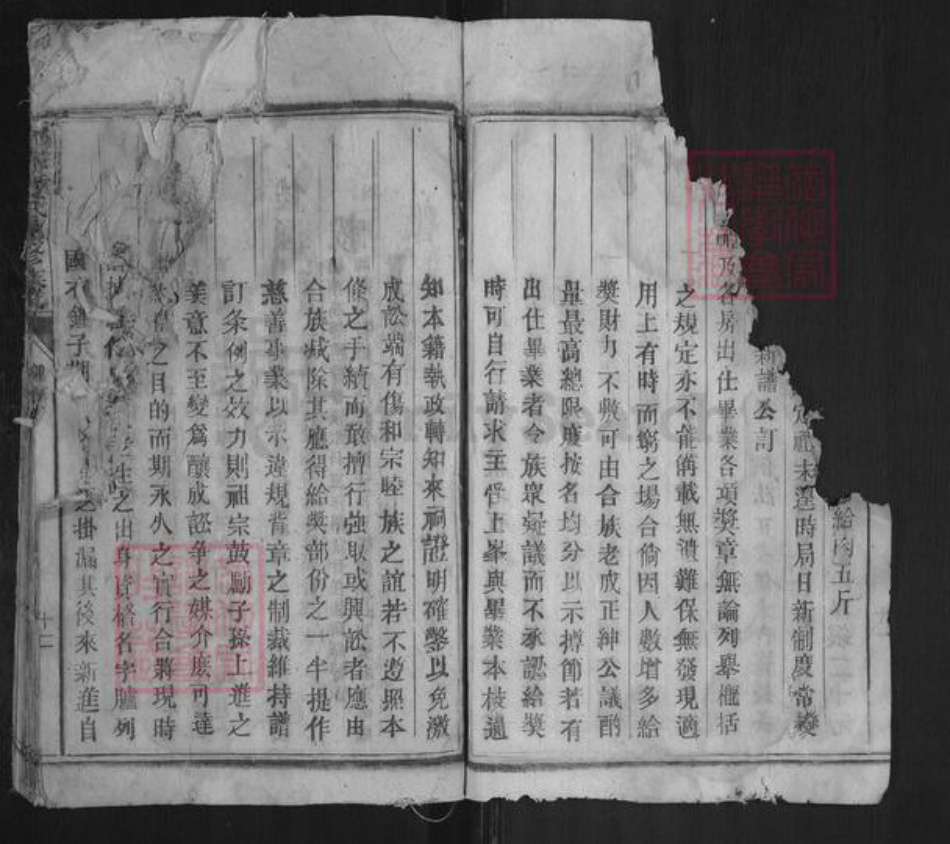 給肉五斤
定祖未選時局日新制度常變
新譜公訂
及各房出仕畢業各項獎章無論列舉概括
之規定亦不能備載無潰難保無發現適
用上有時而窮之場合倘因人數增多給
獎財力不敷可由合族老成正紳公議酌
量最高總限度按名均分以示撙節若有
出仕畢業者令族眾疑議而不承認給獎
時可自行請求主管上峯與畢業本校通
知本籍執政轉知來祠證明確鑿以免激
成訟端有傷和宗睦族之誼若不遵照本
條之手續而敢擅行強取或興訟者應由
合族減除其應得給獎部份之一半提作
慈善事業以示違規背章之制裁維持譜
訂条例之效力則祖宗鼓勵子孫上進之
美意不至變爲釀成訟爭之媒介庶可達
之目的而期永久之實行合將現時
生之出身資格名字臚列
國 子 之掛漏其後來新進自
十二